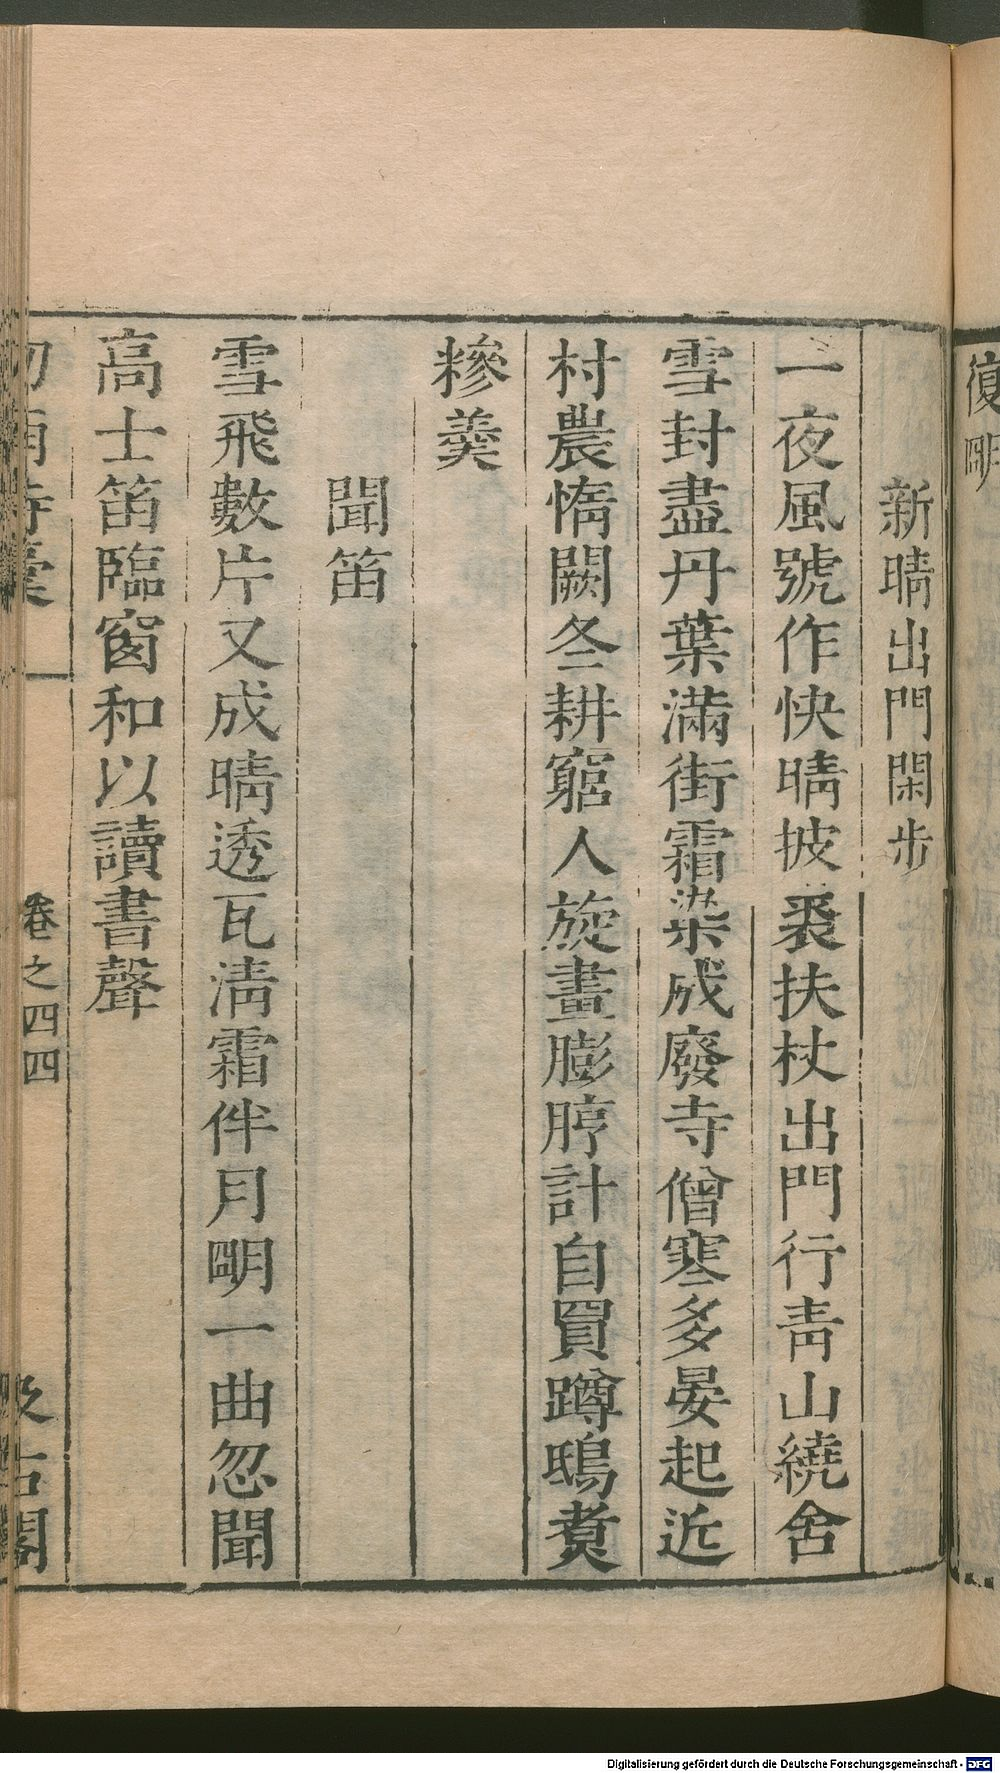 復明
新晴出門閑步
一夜風號作快晴披裘扶杖出門行青山繞舍
雪封盡丹葉滿街霜染成廢寺僧寒多晏起近
村農惰闕冬耕窮人旋畫膨脝計自買蹲鴟煑
糝羹
聞笛
雪飛數片又成晴透瓦淸霜伴月明一曲忽聞
高士笛臨窗和以讀書聲
劍南詩藁
卷之四四
汲古閣
Digitalisierung gefördert durch die Deutsche Forschungsgemeinschaft - DFG